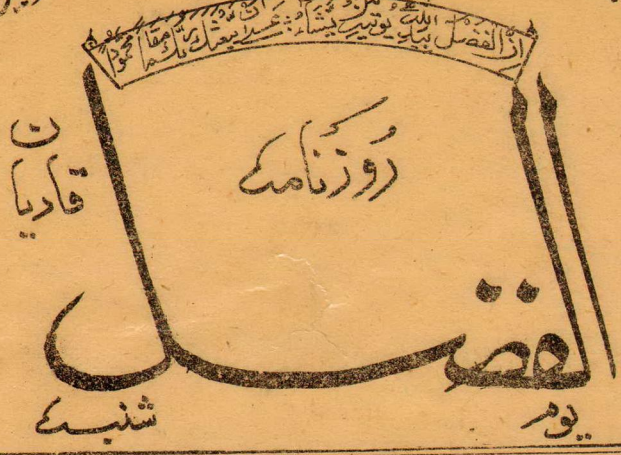 ان الفضل بید اللہ یوتیہ من یشاء عسی ان یبعثک ربک مقاما محمودا
روزنامہ
قادیان
الفضل
یوم شنبہ